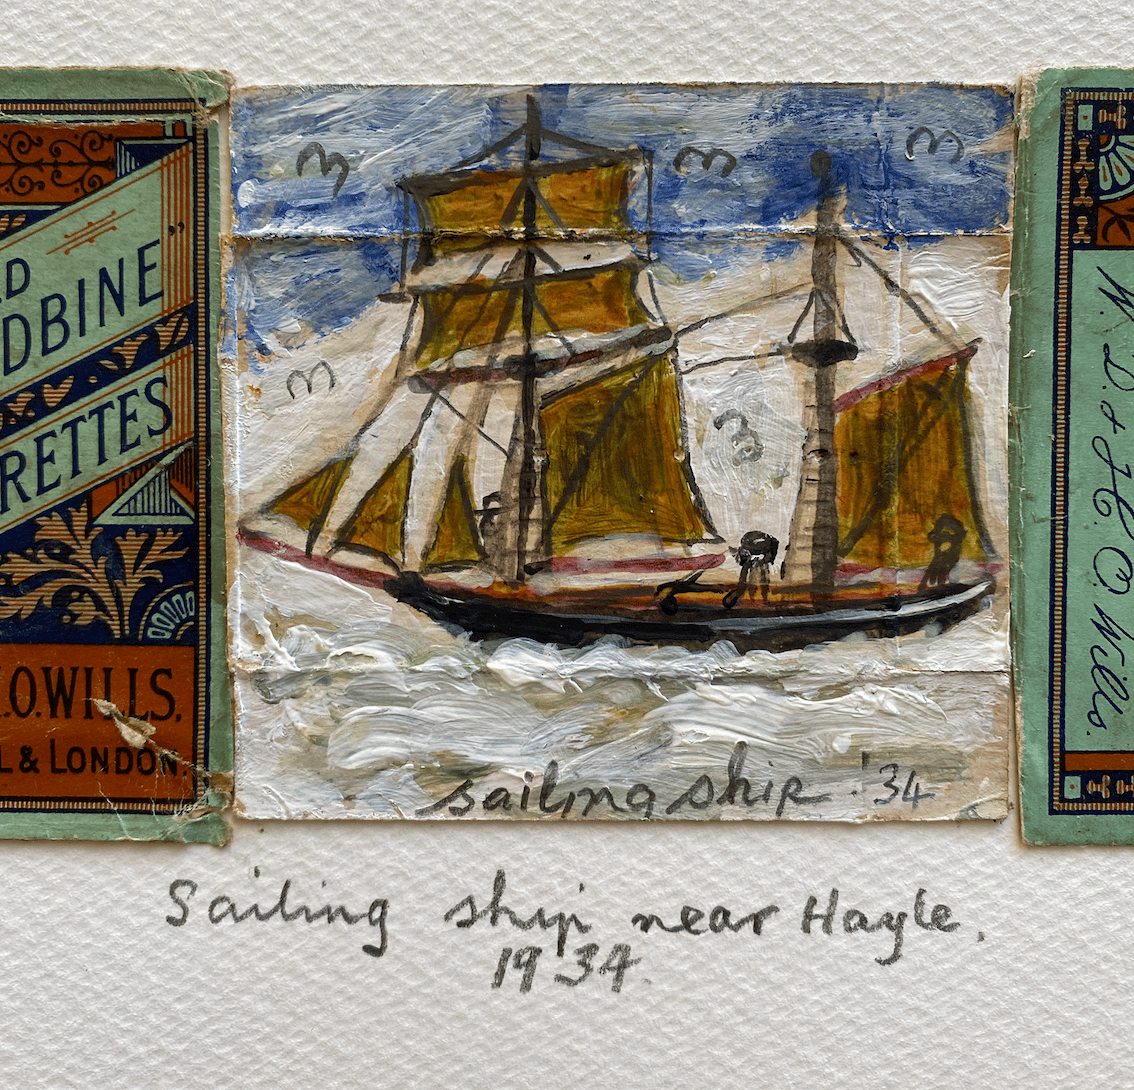 D
DBINE"
RETTES
.O.WILLS,
L & LONDON.
sailing ship. '34
W. D. & H. O. Wills.
Sailing ship near Hayle,
1934.